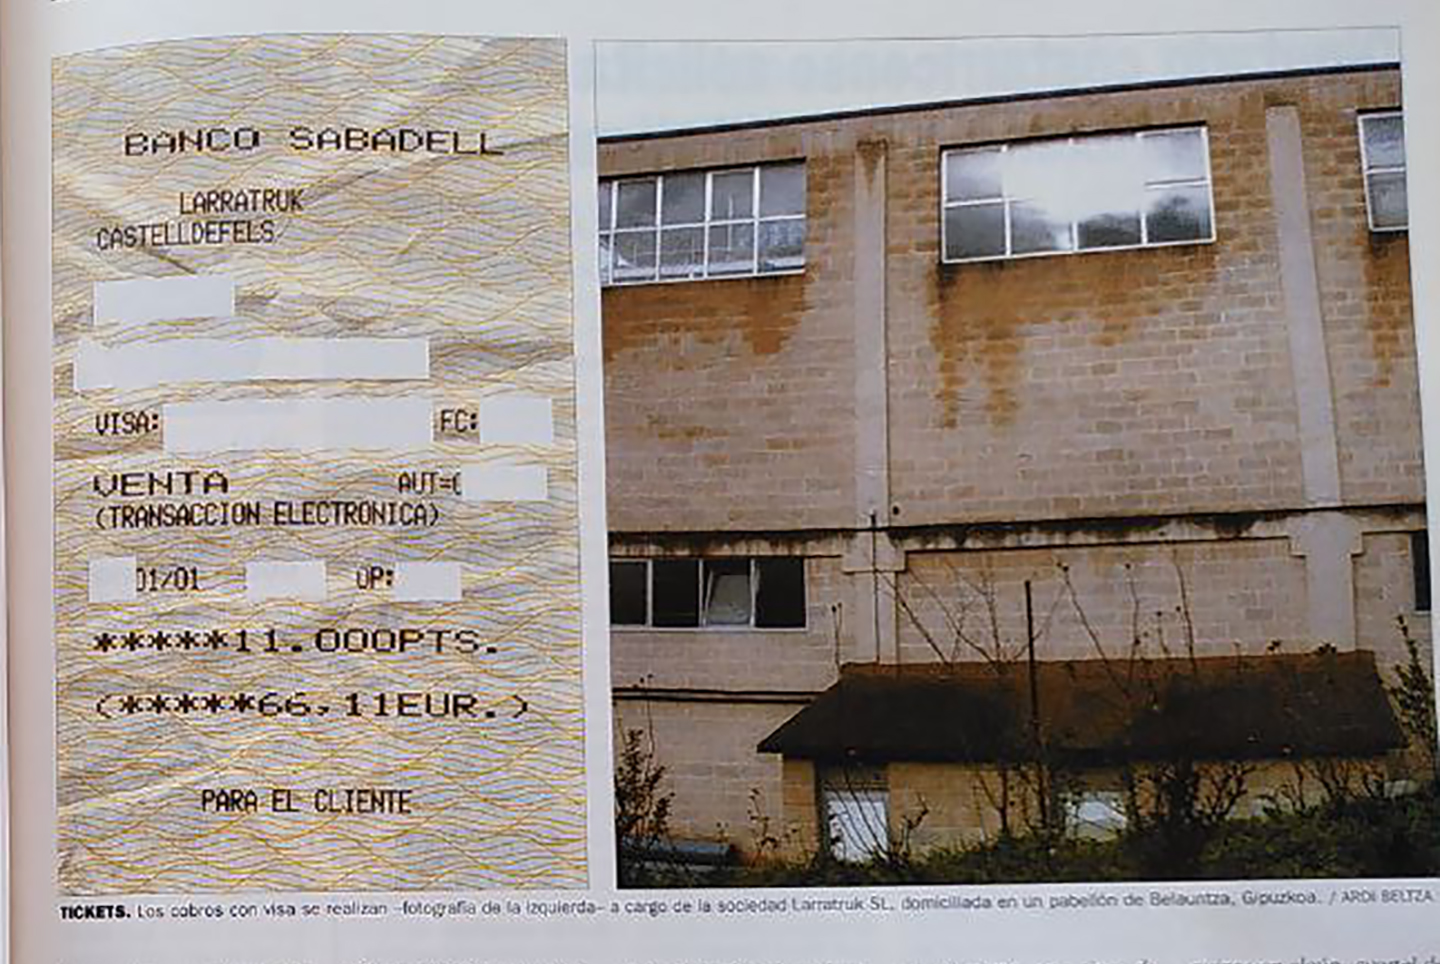 BANCO SABADELL
LARRATRUK
CASTELLDEFELS
VISA: FC:
VENTA AUT=0
(TRANSACCION ELECTRONICA)
01/01 OP:
*****11.000PTS.
(*****66,11EUR.)
PARA EL CLIENTE
TICKETS. Los cobros con visa se realizan –fotografía de la izquierda– a cargo de la sociedad Larratruk SL, domiciliada en un pabellón de Belauntza, Gipuzkoa. / ARDI BELTZA